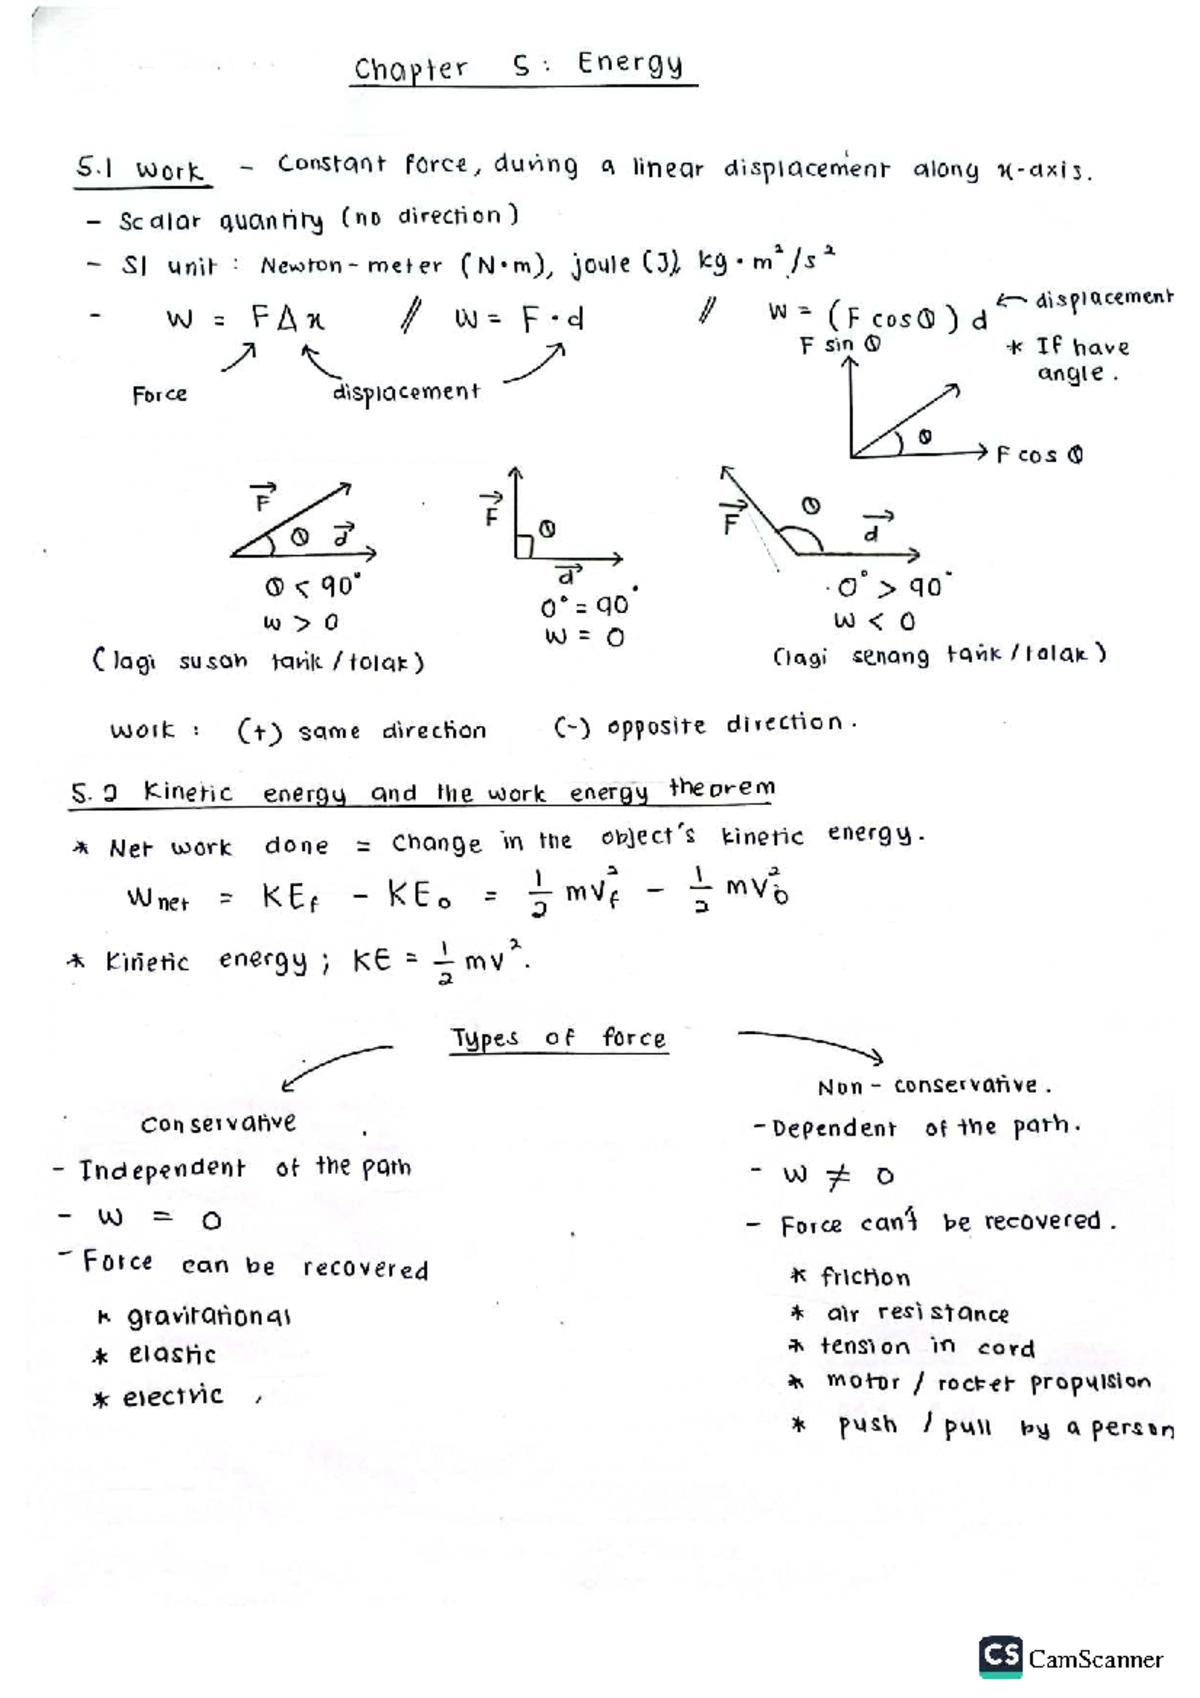 Chapter 5: Energy
5.1 Work - Constant force, during a linear displacement along x-axis.
- Scalar quantity (no direction)
- SI unit : Newton-meter (N·m), joule (J), kg·m²/s²
- W = FΔx // W = F·d // W = (F cos θ) d ← displacement
F sin θ * If have angle.
Force displacement
θ F cos θ
F θ d
F θ d
F θ d
θ < 90° 0° = 90° 0° > 90°
W > 0 W = 0 W < 0
(lagi susah tarik / tolak) (lagi senang tarik / tolak)
Work : (+) same direction (-) opposite direction.
5.2 Kinetic energy and the work energy theorem
* Net work done = Change in the object's kinetic energy.
Wnet = KEf - KE₀ = 1/2 mVf² - 1/2 mV₀²
* Kinetic energy ; KE = 1/2 mv².
Types of force
Conservative
- Independent of the path
- W = 0
- Force can be recovered
* gravitational
* elastic
* electric
Non-conservative.
- Dependent of the path.
- W ≠ 0
- Force can't be recovered.
* friction
* air resistance
* tension in cord
* motor / rocket propulsion
* push / pull by a person
CS CamScanner